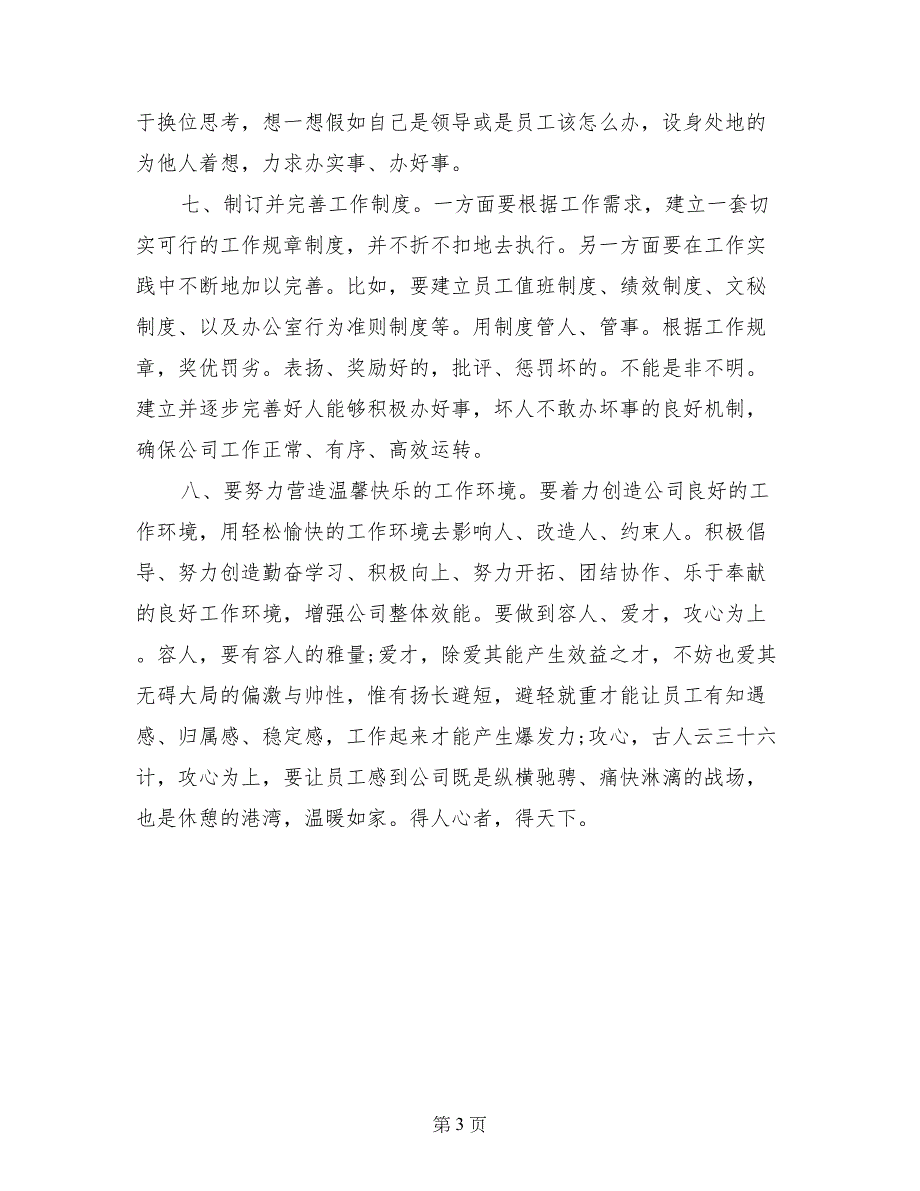 于换位思考，想一想假如自己是领导或是员工该怎么办，设身处地的
为他人着想，力求办实事、办好事。
七、制订并完善工作制度。一方面要根据工作需求，建立一套切
实可行的工作规章制度，并不折不扣地去执行。另一方面要在工作实
践中不断地加以完善。比如，要建立员工值班制度、绩效制度、文秘
制度、以及办公室行为准则制度等。用制度管人、管事。根据工作规
章，奖优罚劣。表扬、奖励好的，批评、惩罚坏的。不能是非不明。
建立并逐步完善好人能够积极办好事，坏人不敢办坏事的良好机制，
确保公司工作正常、有序、高效运转。
八、要努力营造温馨快乐的工作环境。要着力创造公司良好的工
作环境，用轻松愉快的工作环境去影响人、改造人、约束人。积极倡
导、努力创造勤奋学习、积极向上、努力开拓、团结协作、乐于奉献
的良好工作环境，增强公司整体效能。要做到容人、爱才，攻心为上
。容人，要有容人的雅量;爱才，除爱其能产生效益之才，不妨也爱其
无碍大局的偏激与帅性，惟有扬长避短，避轻就重才能让员工有知遇
感、归属感、稳定感，工作起来才能产生爆发力;攻心，古人云三十六
计，攻心为上，要让员工感到公司既是纵横驰骋、痛快淋漓的战场，
也是休憩的港湾，温暖如家。得人心者，得天下。
第 3 页